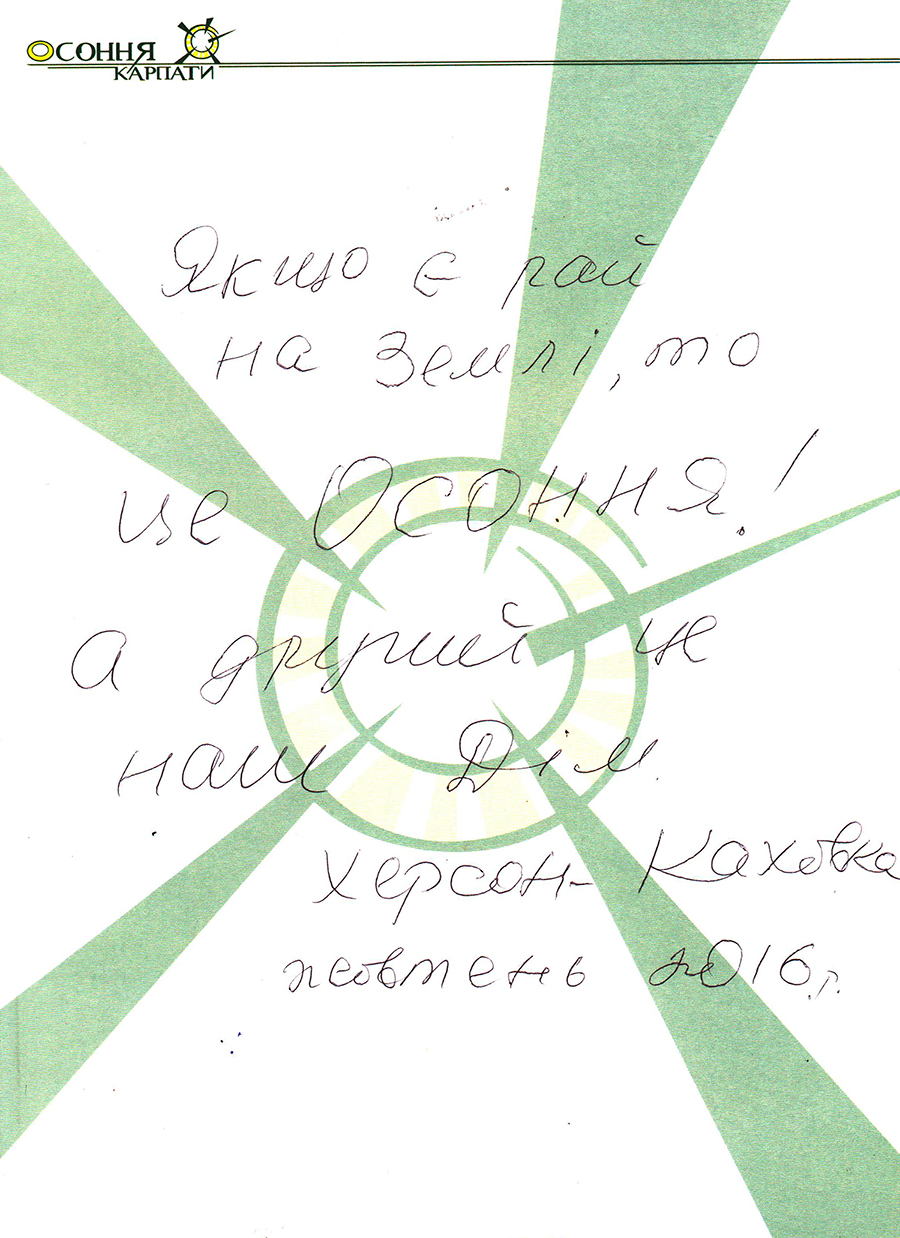 ОСОННЯ
КАРПАТИ
Якщо є рай
на Землі, то
це Осоння!
а другий це
наш Дім.
Херсон-Каховка
жовтень 2016 г.